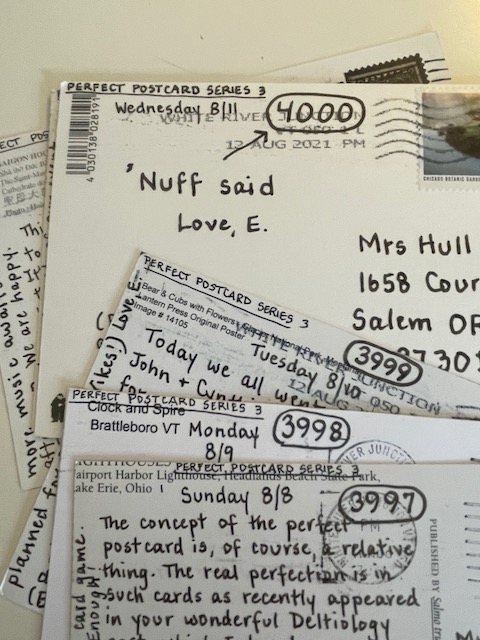 PERFECT POSTCARD SERIES 3
Wednesday 8/11
4000
WHITE RIVER JUNCTION
12 AUG 2021 PM
4 030138 028191
'Nuff said
Love, E.
Mrs Hull
1658 Cour
Salem OR
97301
CHICAGO BOTANIC GARD
PERFECT POSTCARD SERIES 3
Bear & Cubs with Flowers
Lantern Press Original Poster
Image # 14105
Tuesday 8/10
3999
JUNCTION
12 AUG
Today we all went
John +
Love E.
PERFECT POSTCARD SERIES 3
Clock and Spire
Brattleboro VT
Monday
8/9
3998
PERFECT POSTCARD SERIES 3
airport Harbor Lighthouse, Headlands Beach State Park,
ake Erie, Ohio
Sunday 8/8
3997
The concept of the perfect
postcard is, of course, a relative
thing. The real perfection is in
such cards as recently appeared
in your wonderful Deltiology
card game.
Enough!
PUBLISHED BY
planned for
music
We are happy.